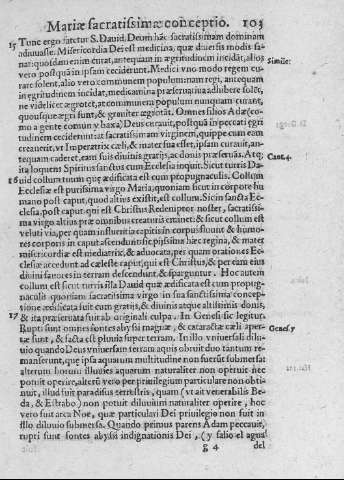 Mariæ sacratissimæ conceptio. 103
15 Tunc ergo fatetur S. Dauid, Deum hac sacratissimam dominam
adiuuasse. Misericordia Dei est medicina, quæ diuersis modis sa-
nat: quosdam enim curat, antequam in ægritudinem incidāt, alios
vero postquā in ipsam ceciderunt. Medici vno modo regem cu-
rare solent, alio vero communem populum: nam regi, antequam
in ægritudinem incidat, medicamina præseruatiua adhibere solēt,
ne videlicet ægrotet, at communem populum nunquam curant,
quousque ægri sunt, & grauiter ægrotāt. Omnes filios Adæ (co-
mo a gente comun y baxa) Deus curauit, postquā in peccati ægri
tudinem ceciderunt: at sacratissimam virginem, quippe cum eam
creauerit, vt Imperatrix cæli, & mater sua esset, ipsam curauit, an-
tequam caderet, eam suis diuinis gratijs, ac donis præseruās. Atq;
ita loquens Spiritus sanctus cum Ecclesia inquit. Sicut turris Da-
16 uid collum tuum, quæ ædificata est cum propugnaculis. Collum
Ecclesiæ est purissima virgo Maria, quoniam sicut in corpore hu
mano post caput, quod altius existit, est collum. Sic in sancta Ec
clesia, post caput, qui est Christus Redemptor noster, sacratissi-
ma virgo altius præ omnibus creaturis eminet: & sicut collum est
veluti via, per quam influentia capitis in corpus fluunt & humo-
res corporis in caput ascendunt: sic pijssima hæc regina, & mater
misericordiæ est mediatrix, & aduocata, per quam orationes Ec-
clesiæ ascendunt ad cæleste caput, qui est Christus, & per eam eius
diuini fauores in terram descendunt, & sparguntur. Hoc autem
collum est sicut turris illa Dauid quæ ædificata est cum propug-
naculis: quoniam sacratissima virgo in sua sanctissima concep-
tione ædificata fuit cum gratijs, & diuinis atque altissimis donis,
17 & ita præseruata fuit ab originali culpa. In Genesi sic legitur.
Rupti sunt omnes fontes abyssi magnæ, & cataractæ cæli aper-
tæ sunt, & facta est pluuia super terram. In illo vniuersali dilu-
uio quando Deus vniuersam terram aquis obruit duo tantum re-
manserunt, quę ipsa aquarum multitudine non fuerūt submersa:
alterum horum illuuies aquarum naturaliter non operuit nec
potuit operire, alterū vero per priuilegium particulare non obti-
nuit, illud fuit paradisus terrestris, quam (vt ait venerabilis Be-
da, & Estrabo) non potuit diluuium naturaliter operire, hoc
vero fuit arca Noe, quæ particulari Dei priuilegio non fuit in
illo diluuio submersa. Quando primus parens Adam peccauit,
rupti sunt fontes abyssi indignationis Dei, (y salio el agua
g 4 del
Simile:
Cant. 4.
Genes. 7